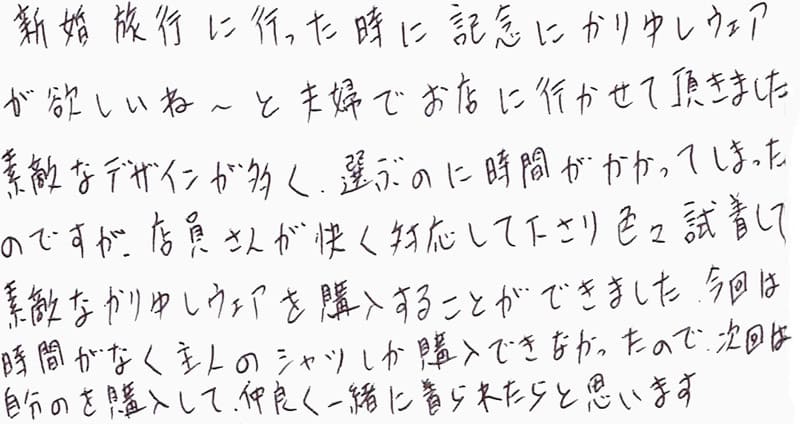 新婚旅行に行った時に記念にかりゆしウェア
が欲しいね～と夫婦でお店に行かせて頂きました
素敵なデザインが多く、選ぶのに時間がかかってしまった
のですが、店員さんが快く対応して下さり色々試着して
素敵なかりゆしウェアを購入することができました。今回は
時間がなく主人のシャツしか購入できなかったので、次回は
自分のを購入して、仲良く一緒に着られたらと思います